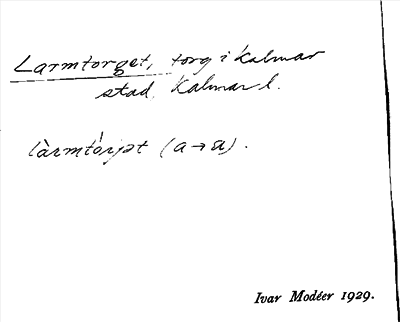 Larmtorget, torg i Kalmar
stad, Kalmar l.
làrmtórjət (a→a).
Ivar Modéer 1929.